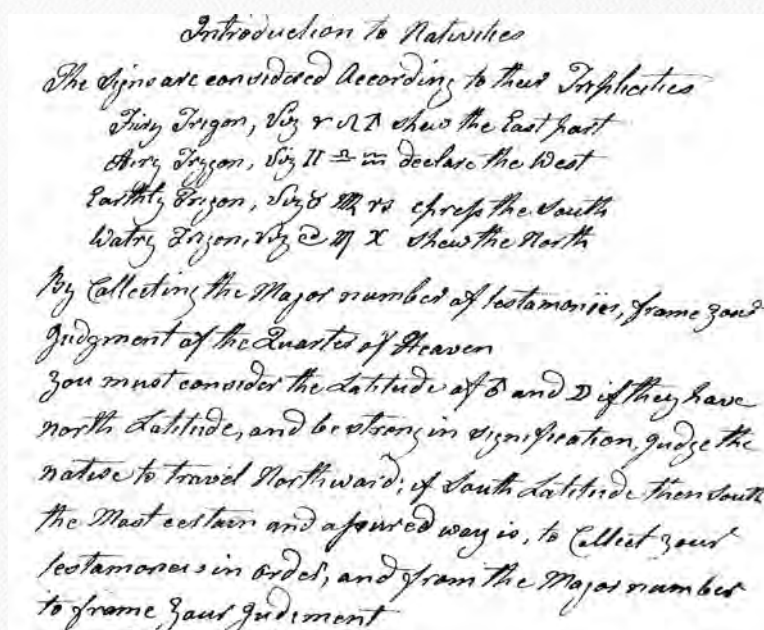 Introduction to Nativities
The Signs are considered According to their Triplicities
Firy Trigon, Viz ♈ ♌ ♐ shew the East part
Airy Trygon, Viz ♊ ♎ ♒ declare the West
Earthly Trigon, Viz ♉ ♍ ♑ epress the South
Watry Trigon, viz ♋ ♏ ♓ shew the North
By Collecting the Major number of testamonies, frame your
Judgment of the Quarter of Heaven
You must consider the Latitude of and ☽ if they have
north Latitude, and be strong in signification, judge the
native to travel Northward; if South Latitude then South
the Most certain and assured way is, to Collect your
testamoneis in order, and from the Major number
to frame your Judgment